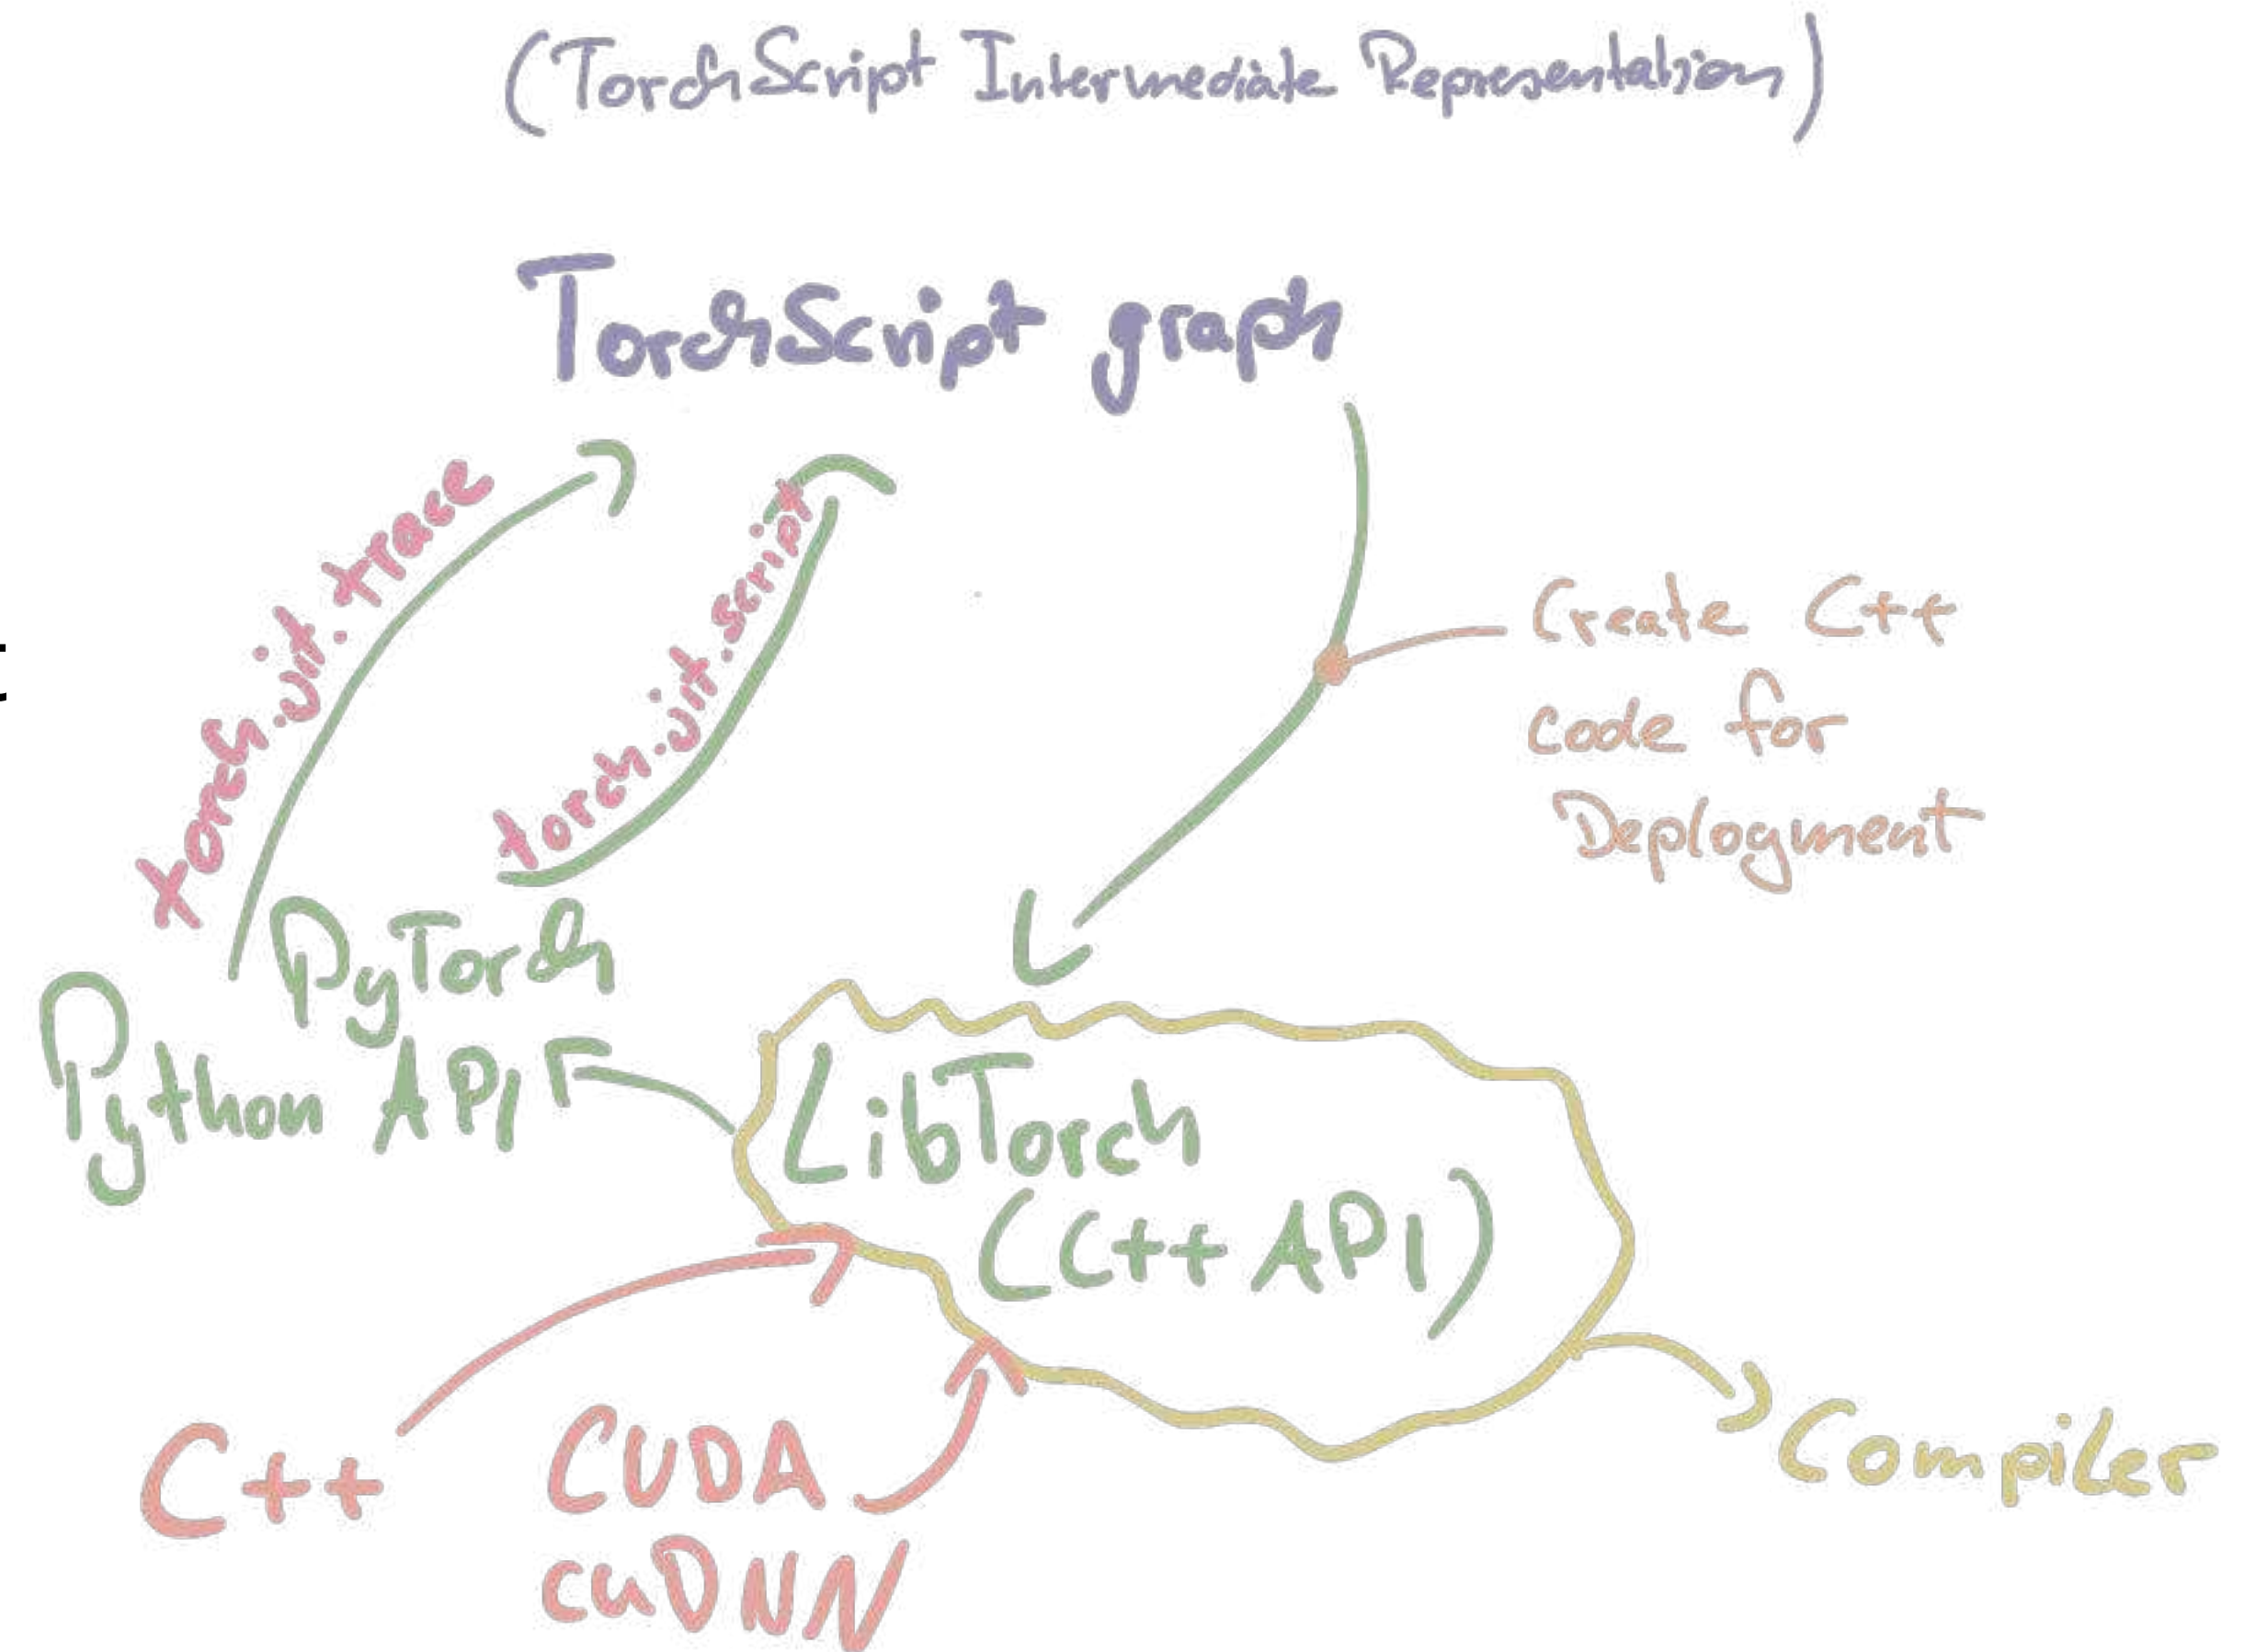 (TorchScript Intermediate Representation)
TorchScript graph
torch.jit.trace
torch.jit.script
Create C++
code for
Deployment
PyTorch
Python API
LibTorch
(C++ API)
C++
CUDA
cuDNN
Compiler
t